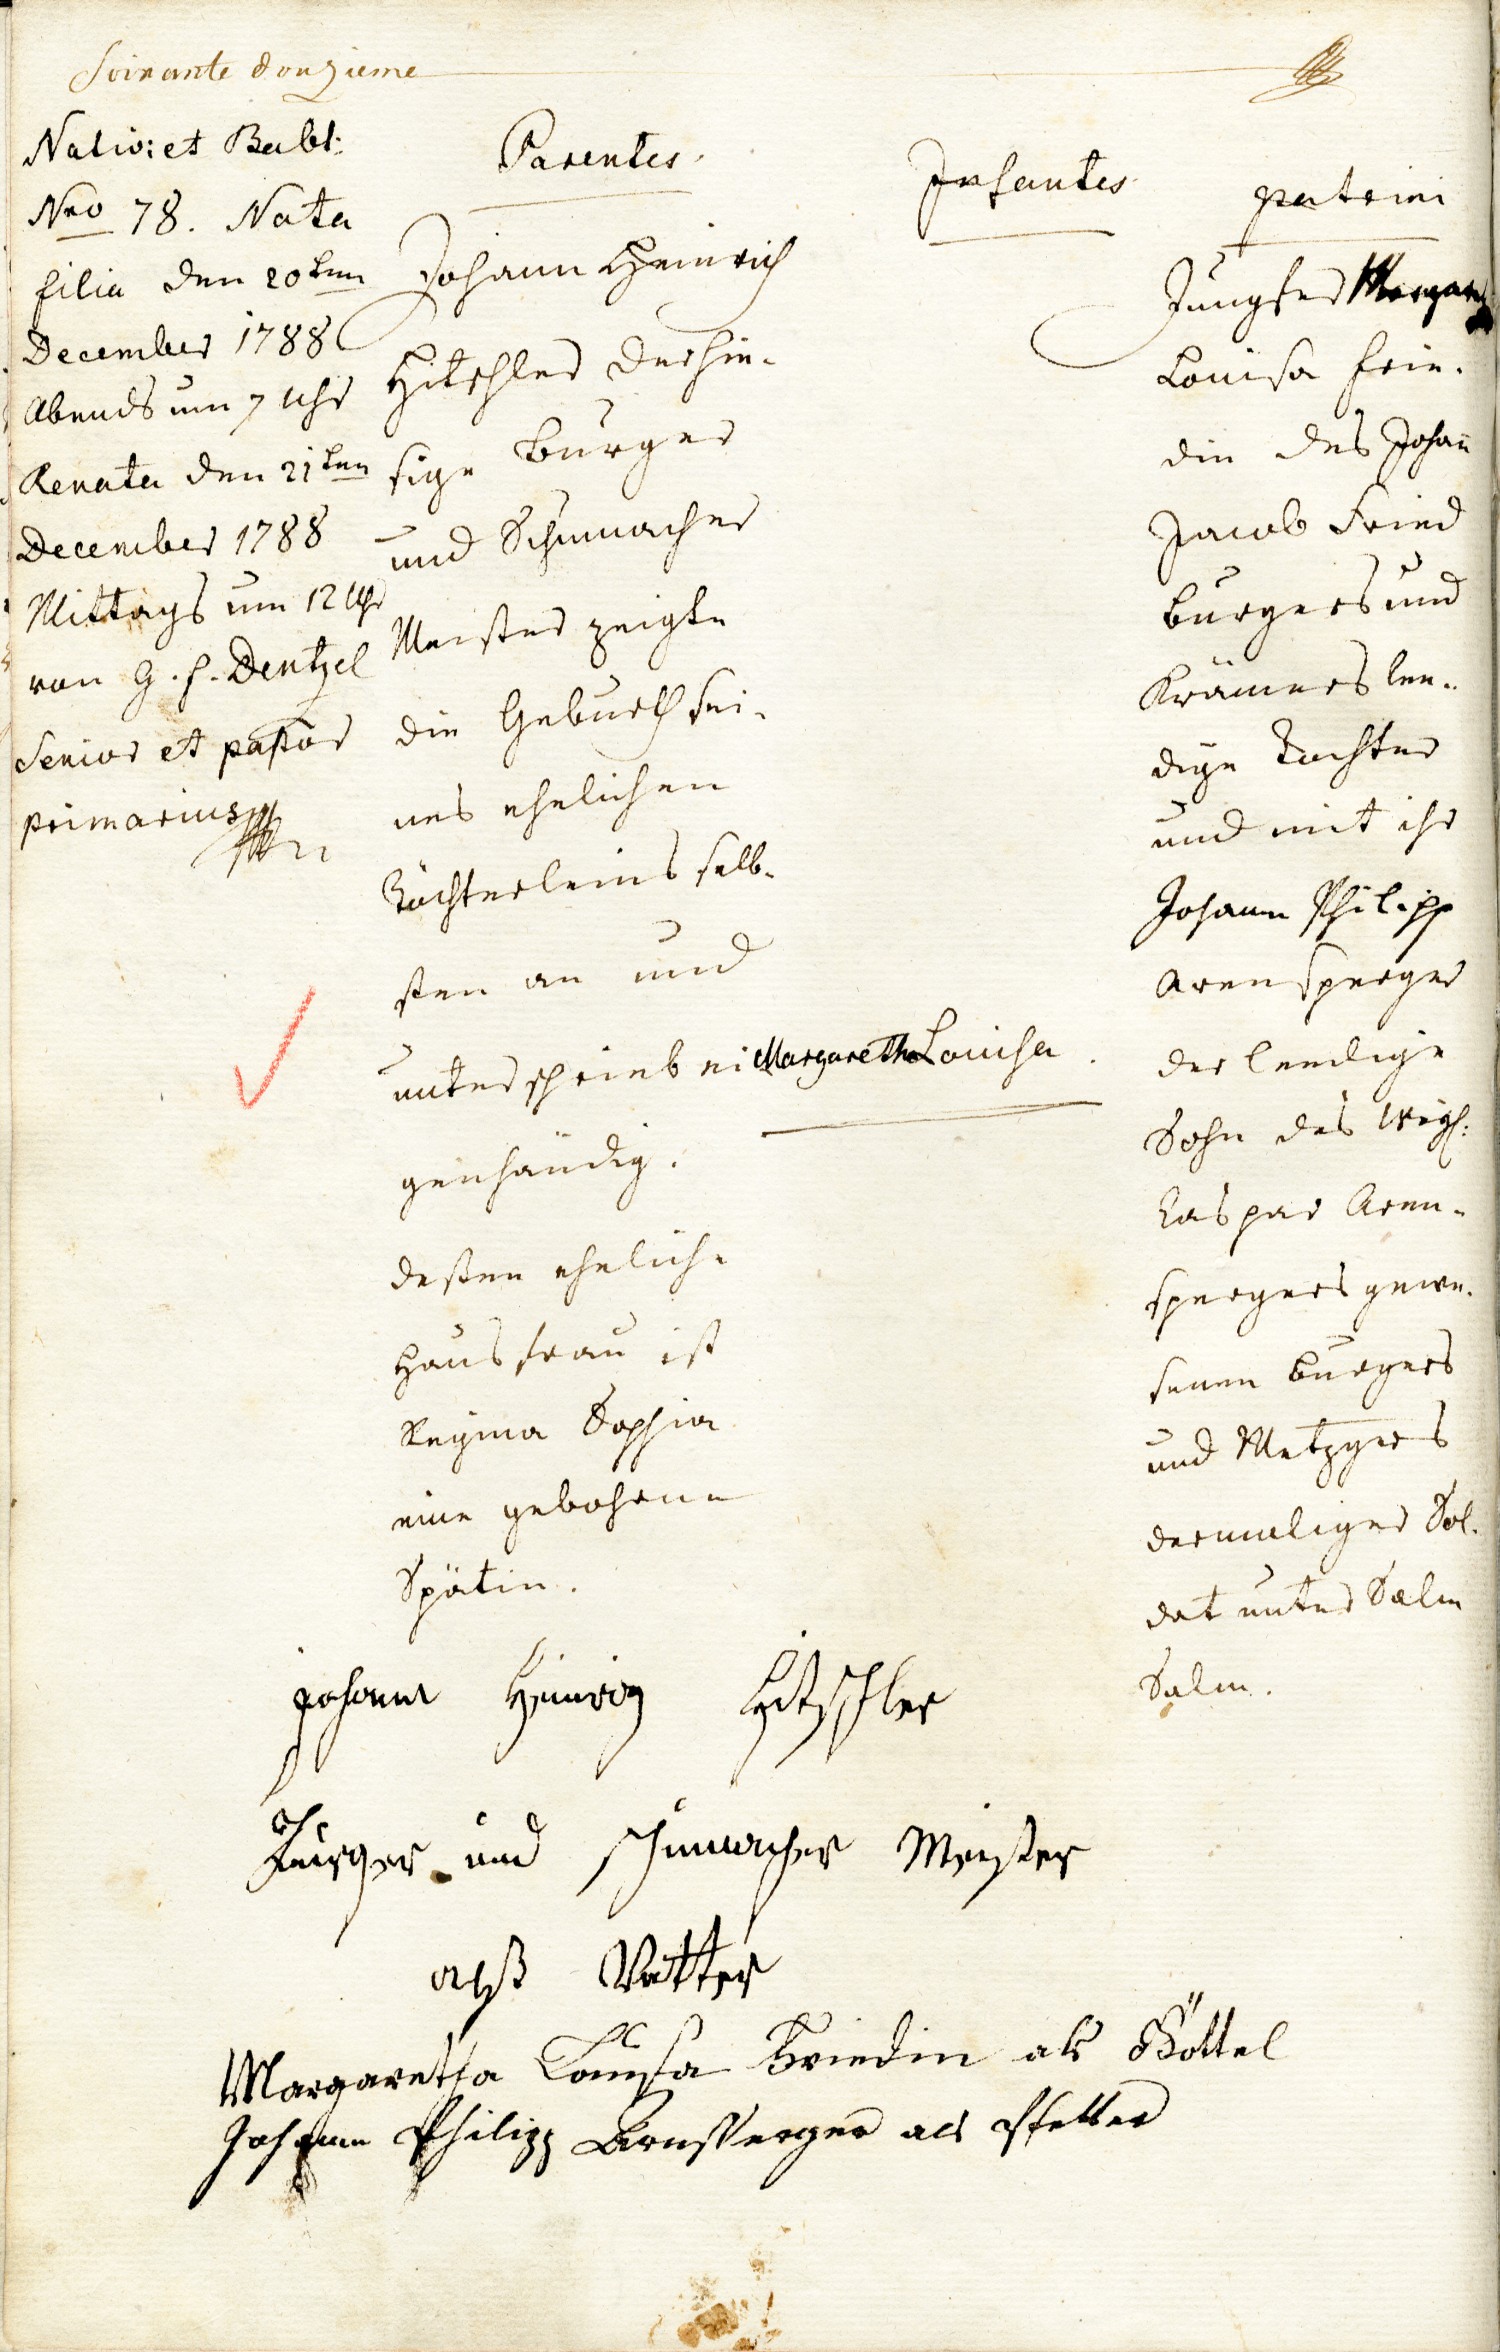 Soixante douzieme
Nativ: et Babt:
Nro 78. Nata
filia den 20ten
December 1788
Abends um 7 Uhr
Renata den 21ten
December 1788
Mittags um 12 Uhr
von G. f. Dentzel
Senior et pastor
primarius
Parentes.
Johann Heinrich
Hitschler der hie-
sige burger
und Schumacher
Meister zeigte
die Geburth sei-
nes ehelichen
Töchterleins selb-
sten an und
unterschrieb ei
genhändig.
deßen ehelich-
hausfrau ist
Regina Sophia
eine gebohrne
Spätin.
Infantes
Margaretha Louisa.
patrini
Jungfer Margareth
Louisa frie-
din des Johan̄
Jacob Fried
burgers und
Krämers lee-
dige Tochter
und mit ihr
Johann Philipp
Arensperger
der leedige
Sohn des weyl:
Caspar Aren-
spergers gewe-
senen burgers
und Metzgers
dermaliger Sol-
dat unter Salm
Salm.
Johann Heinrich Hitschler
burger und schumacher Meister
alß Vatter
Margaretha Louisa Friedin als Göttel
Johann Philipp Arnsperger als Pfetter